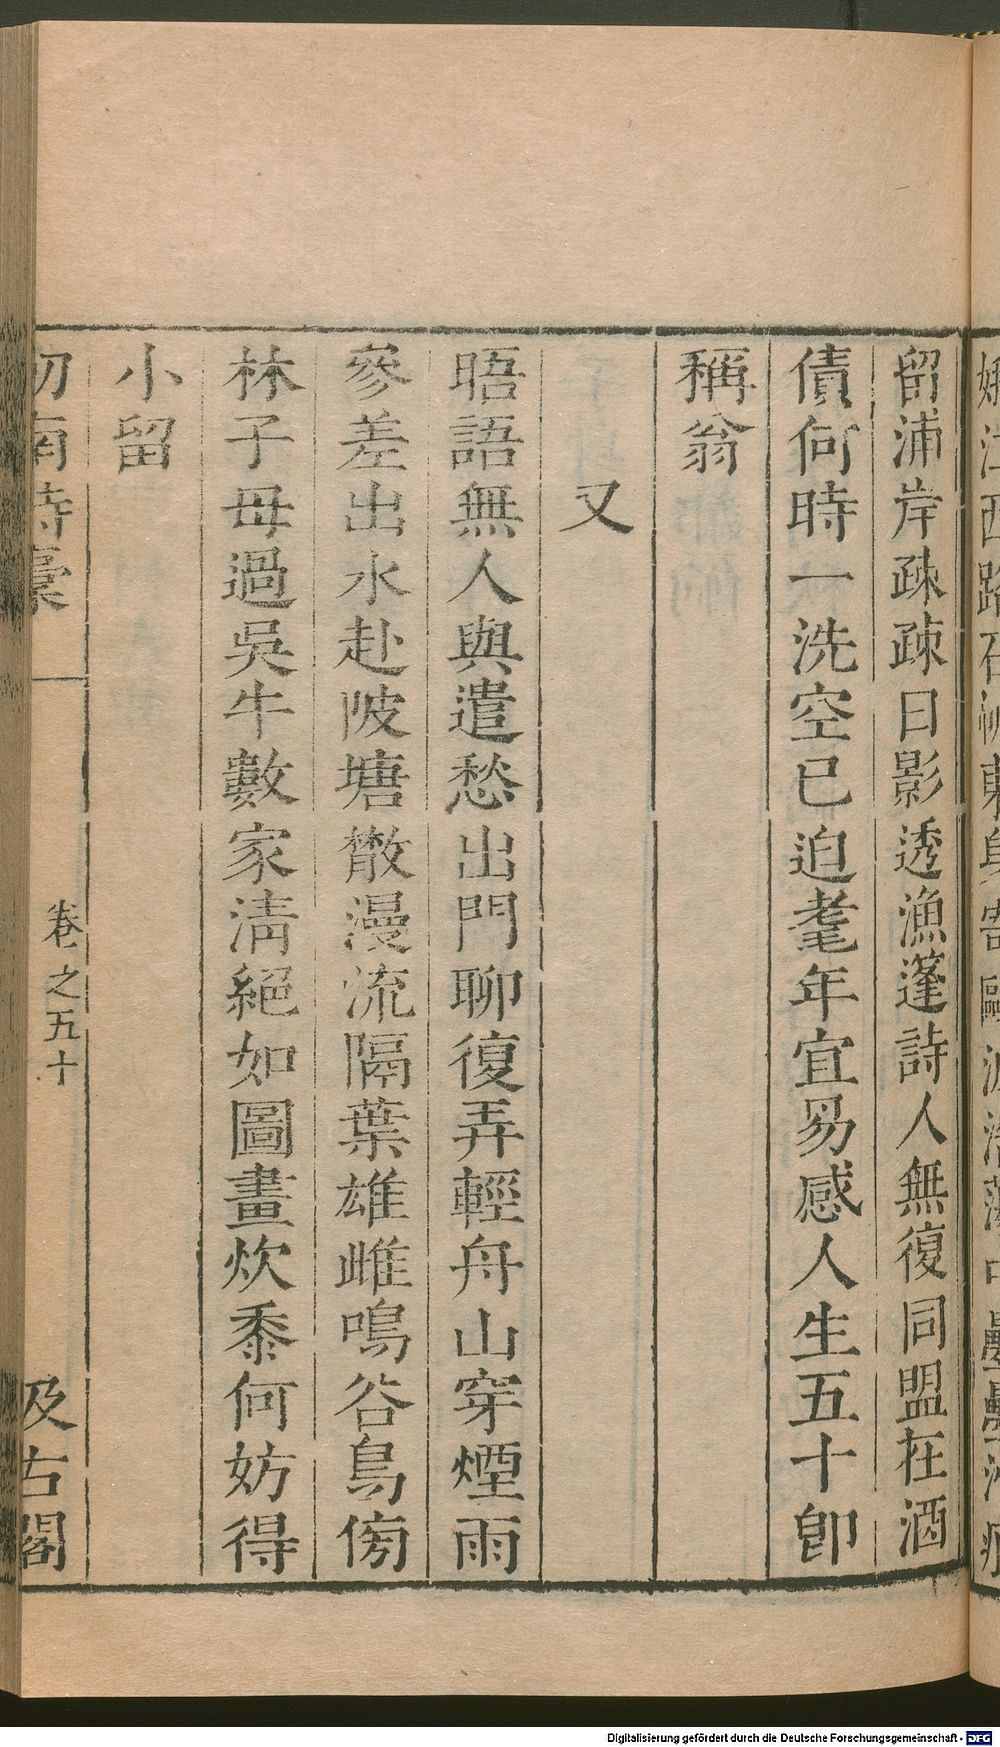 留浦岸疎疎日影透漁蓬詩人無復同盟在酒
債何時一洗空已迫耄年宜易感人生五十卽
稱翁
又
晤語無人與遣愁出門聊復弄輕舟山穿煙雨
參差出水赴陂塘散漫流隔葉雄雌鳴谷鳥傍
林子母過吳牛數家淸絕如圖畫炊黍何妨得
小留
劒南詩稾
卷之五十
汲古閣
Digitalisierung gefördert durch die Deutsche Forschungsgemeinschaft - DFG